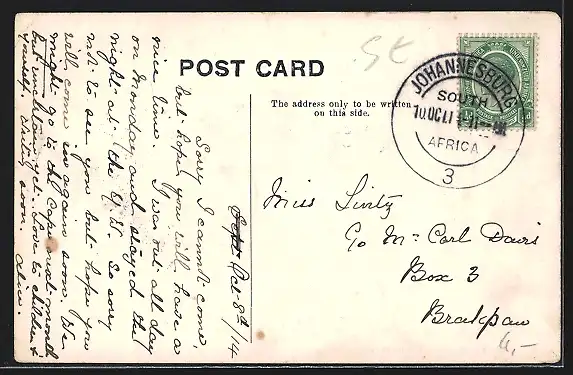 POST CARD
The address only to be written
on this side.
Sept Oct 8th/14
Sorry I cannot come,
but hope you will have a
nice time. I was out all day
on Monday and stayed the
night at the
not to see you but hope you
will come in again soon. We
might go to the Cape next month
but uncertain yet. Love to children &
yourself. Writing soon.
JOHANNESBURG
SOUTH
AFRICA
3
Miss
C/o Mr. Carl Davis
Box 3
Brakpan
4,-